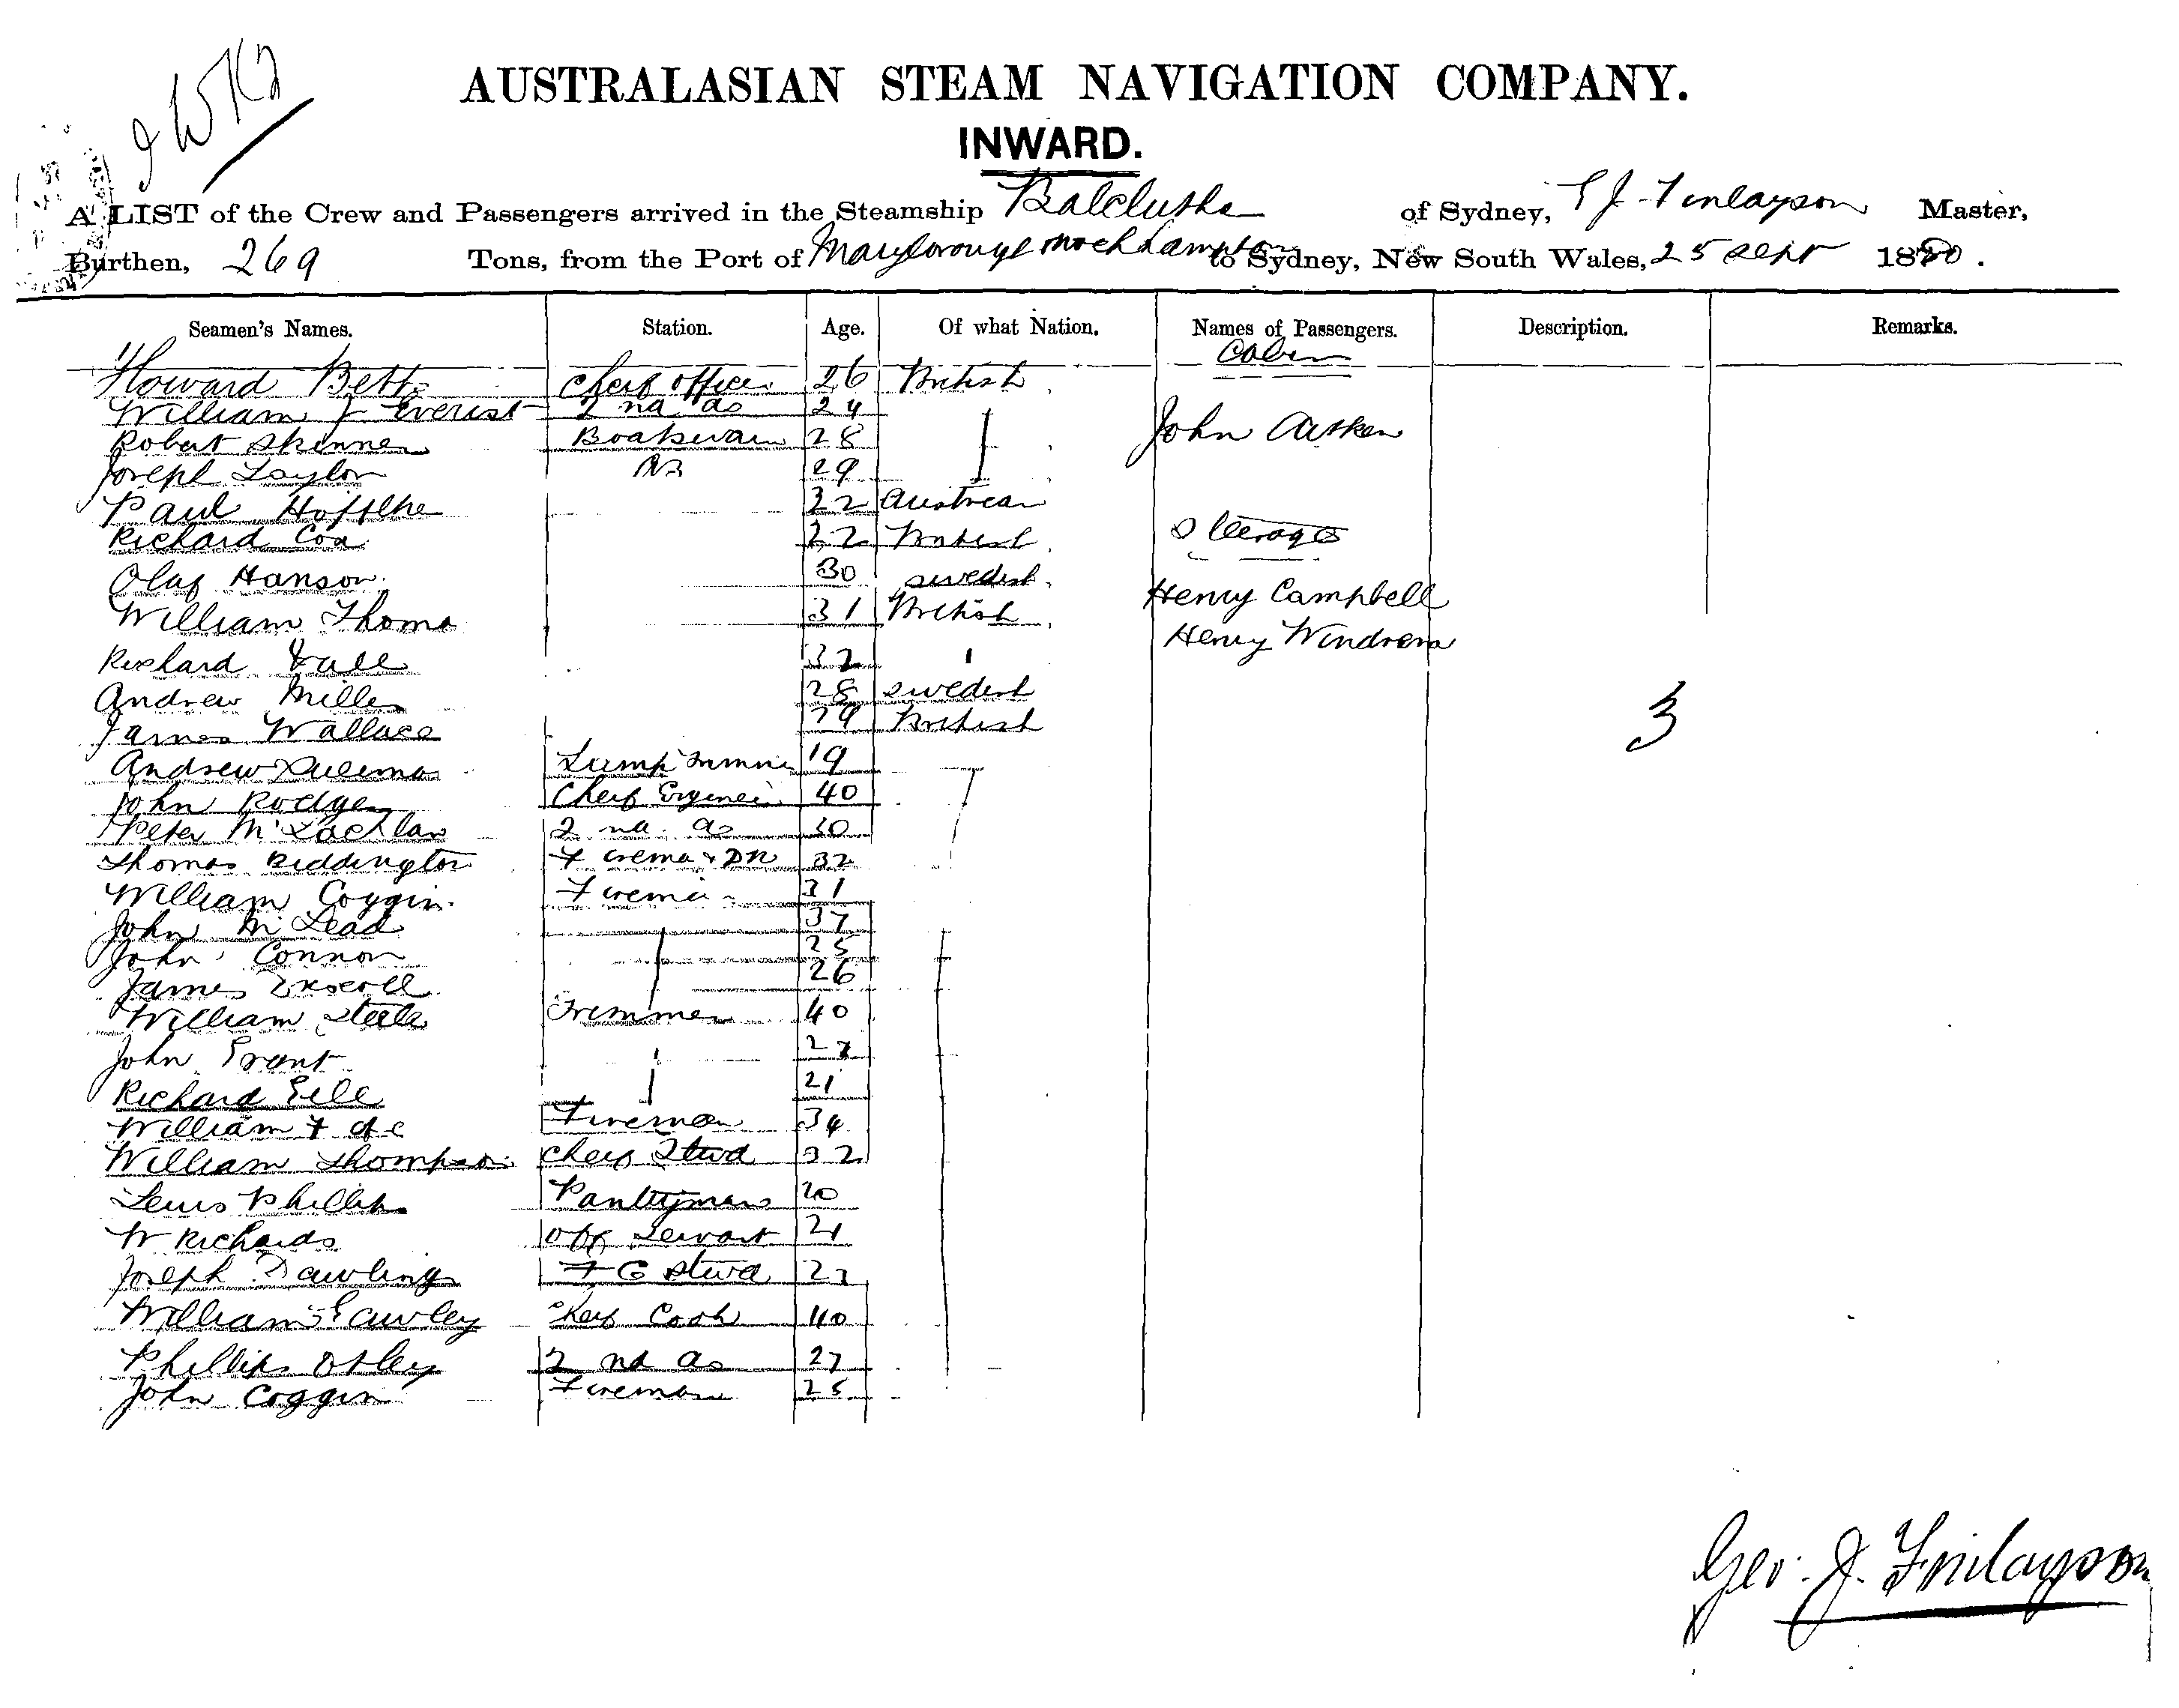 AUSTRALASIAN STEAM NAVIGATION COMPANY.
INWARD.
A LIST of the Crew and Passengers arrived in the Steamship Balclutha of Sydney, G J Finlayson Master,
Burthen, 269 Tons, from the Port of Maryborough Rockhampton to Sydney, New South Wales, 25 Sept 1880.
Seamen's Names. Station. Age. Of what Nation. Names of Passengers. Description. Remarks.
Cabin
Howard Betts Cheif Officer 26 British
William J Everist 2nd do 24
Robert Skinner Boatswain 28 John Aitken
Joseph Taylor AB 29
Paul 32 Austrian
Richard Cox 22 British Steerage
Olaf Hanson 30 Swedish
William Thoma 31 British Henry Campbell
Richard 32 Henry
Andrew Miller 28 Swedish
James Wallace 29 British 3
Andrew Lamp Trimmer 19
John Rodger Cheif Engineer 40
Peter McLachlan 2nd do 30
Thomas Biddington Firema & DN 32
William Coggin Firema 31
John McLead 37
John Connor 25
James Driscoll 26
William Steele Trimmer 40
John Grant 27
Richard Gill 21
William Fireman 34
William Thompson Cheif Stwd 32
Lewis Phillips Pantryman 20
W Richards Off Servant 21
Joseph Dawling F C Stwd 22
William Gawley Cheif Cook 40
Phillip Otley 2nd do 27
John Coggin Fireman 25
Geo. J. Finlayson